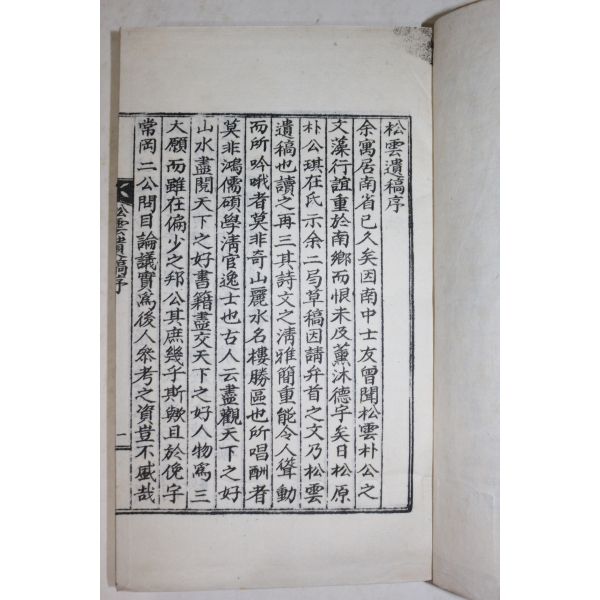 松雲遺稿序
余寓居南省已久矣因南中士友曾聞松雲朴公之
文藻行誼重於南鄉而恨未及薰沐德宇矣日松原
朴公琪在氏示余二局草稿因請弁首之文乃松雲
遺稿也讀之再三其詩文之淸雅簡重能令人聳動
而所吟哦者莫非奇山麗水名樓勝區也所唱酬者
莫非鴻儒碩學淸官逸士也古人云盡觀天下之好
山水盡閱天下之好書籍盡交天下之好人物爲三
大願而雖在偏少之邦公其庶幾乎斯歟且於俛宇
常岡二公問目論議實爲後人參考之資豈不盛哉
松雲遺稿序
一